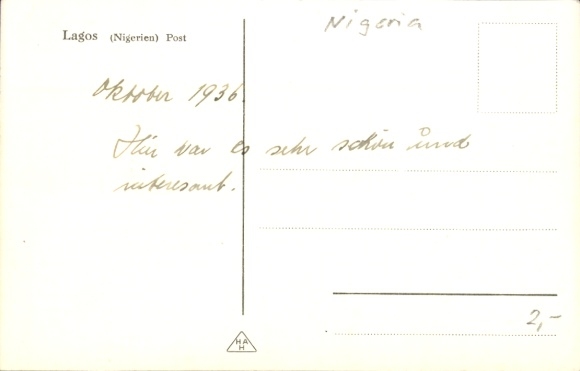 Nigeria
Lagos (Nigerien) Post
Oktober 1936.
Hier war es sehr schön und
interesant.
2,-
HA
H